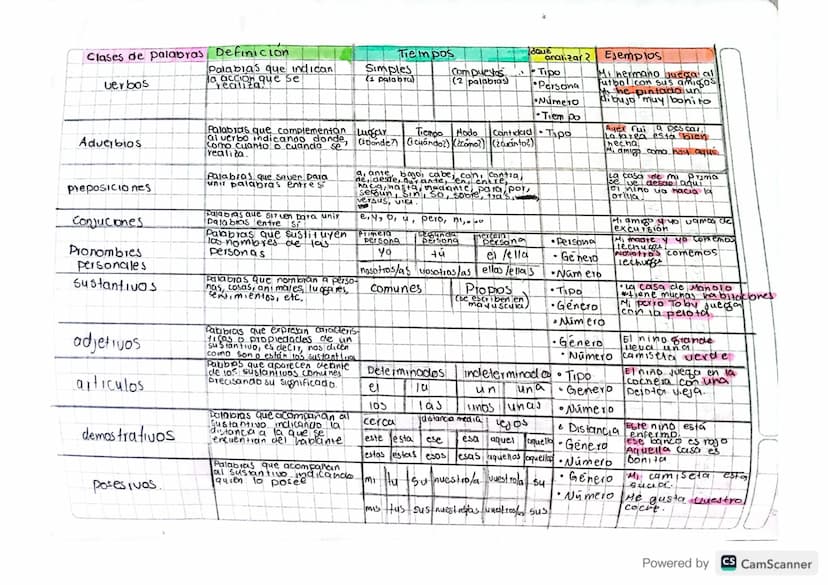 Clases de palabras Definición Tiempos ¿Qué analizar? Ejemplos
verbos
Palabras que indican
la acción que se
realiza.
Simples
(1 palabra)
Compuestos
(2 palabras)
• Tipo
• Persona
• Número
• Tiempo
Mi hermano juega al
futbol con sus amigos
he pintado un
dibujo muy bonito
Adverbios
Palabras que complementan
al verbo indicando donde,
como cuanto o cuando se
realiza.
Lugar Tiempo Modo Cantidad
(¿Dónde?) (¿cuándo?) (¿cómo?) (¿cuánto?)
• Tipo
Ayer fui a pescar
La tarea esta bien
hecha.
Mi amigo come hoy aquí
preposiciones
Palabras que sirven para
unir palabras entre si
a, ante, bajo, cabe, con, contra,
de, desde, durante, en, entre,
hacia, hasta, mediante, para, por,
segun, sin, so, sobre, tras,
versus, vía.
La casa de mi prima
se ve desde aquí
el niño va hacia la
orilla.
Conjuciones
Palabras que sirven para unir
palabras entre sí
e, y, o, u, pero, ni,...
Mi amigo y yo vamos de
excursión
Pronombres
personales
Palabras que sustituyen
los nombres de las
personas
Primera
persona
segunda
persona
tercera
persona
yo tú el/ella
nosotros/as vosotros/as ellos/ellas
• Persona
• Género
• Número
Mi madre y yo comemos
lechuga.
Nosotros comemos
lechuga
sustantivos
Palabras que nombran a perso-
nas, cosas, animales, lugares,
sentimientos, etc.
comunes
Propios
(se escriben en
mayuscula)
• Tipo
• Género
• Número
• La casa de Manolo
tiene muchas habitaciones
Mi perro Toby juega
con la pelota
adjetivos
Palabras que expresan caracterís-
ticas o propiedades de un
sustantivo, es decir, nos dicen
como son o están los sustantivos
• Género
• Número
El niño grande
lleva una
camiseta verde
articulos
Palabras que aparecen delante
de los sustantivos comunes
precisando su significado.
Determinados indeterminados
el la un una
los las unos unas
• Tipo
• Genero
• Número
El niño juega en la
cochera con una
pelota vieja.
demostrativos
Palabras que acompañan al
sustantivo indicando la
distancia a la que se
encuentran del hablante
cerca distancia media lejos
este esta ese esa aquel aquella
estos estas esos esas aquellos aquellas
• Distancia
• Género
• Número
Este niño está
enfermo.
ese banco es rojo
Aquella casa es
bonita
posesivos.
Palabras que acompañan
al sustantivo indicando
quien lo posee
mi tu su nuestro/a vuestro/a su
mis tus sus nuestros/as vuestros/as sus
• Género
• Número
Mi camiseta esta
sucia.
Me gusta vuestro
coche.
Powered by CS CamScanner